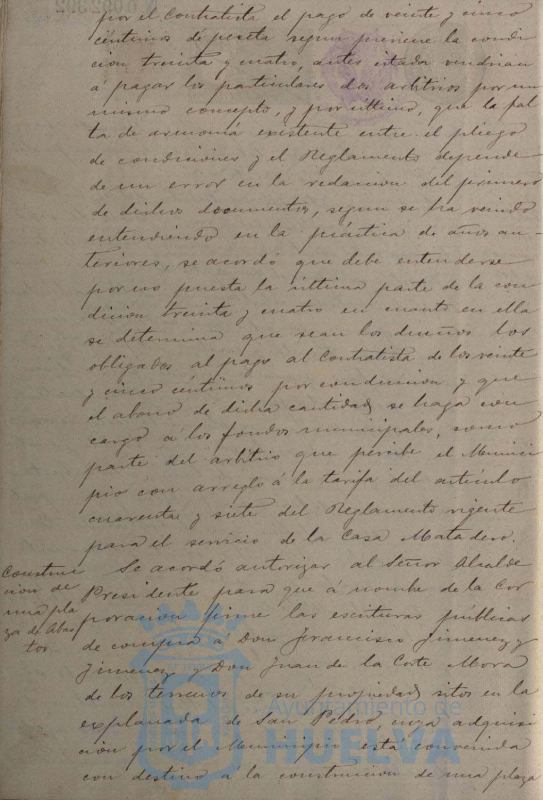 por el Contratista el pago de veinte y cinco
céntimos de peseta segun previene la condi
cion treinta y cuatro, antes citada vendrian
á pagar los particulares dos arbitrios por un
mismo concepto, y por último, que la fal
ta de armonia existente entre el pliego
de condiciones y el Reglamento depende
de un error en la redaccion del primero
de dichos documentos, segun se ha venido
entendiendo en la práctica de años an-
teriores, se acordó que debe entenderse
por no puesta la última parte de la con
dicion treinta y cuatro en cuanto en ella
se determina que sean los dueños los
obligados al pago al Contratista de los veinte
y cinco céntimos por conduccion y que
el abono de dicha cantidad, se haga con
cargo á los fondos municipales, como
parte del arbitrio que percibe el Munici
pio con arreglo á la tarifa del artículo
cuarenta y siete del Reglamento vigente
para el servicio de la Casa Matadero.
Construc
cion de
una pla
za de Abas
tos.
Se acordó autorizar al Señor Alcalde
Presidente para que á nombre de la Cor
poracion firme las escrituras públicas
de compra á Don Francisco Jimenez y
Jimenez y Don Juan de la Corte Mora
de los terrenos de su propiedad sitos en la
explanada de San Pedro, cuya adquisi
cion por el Municipio está convenida
con destino á la construccion de una plaza
Ayuntamiento de
HUELVA